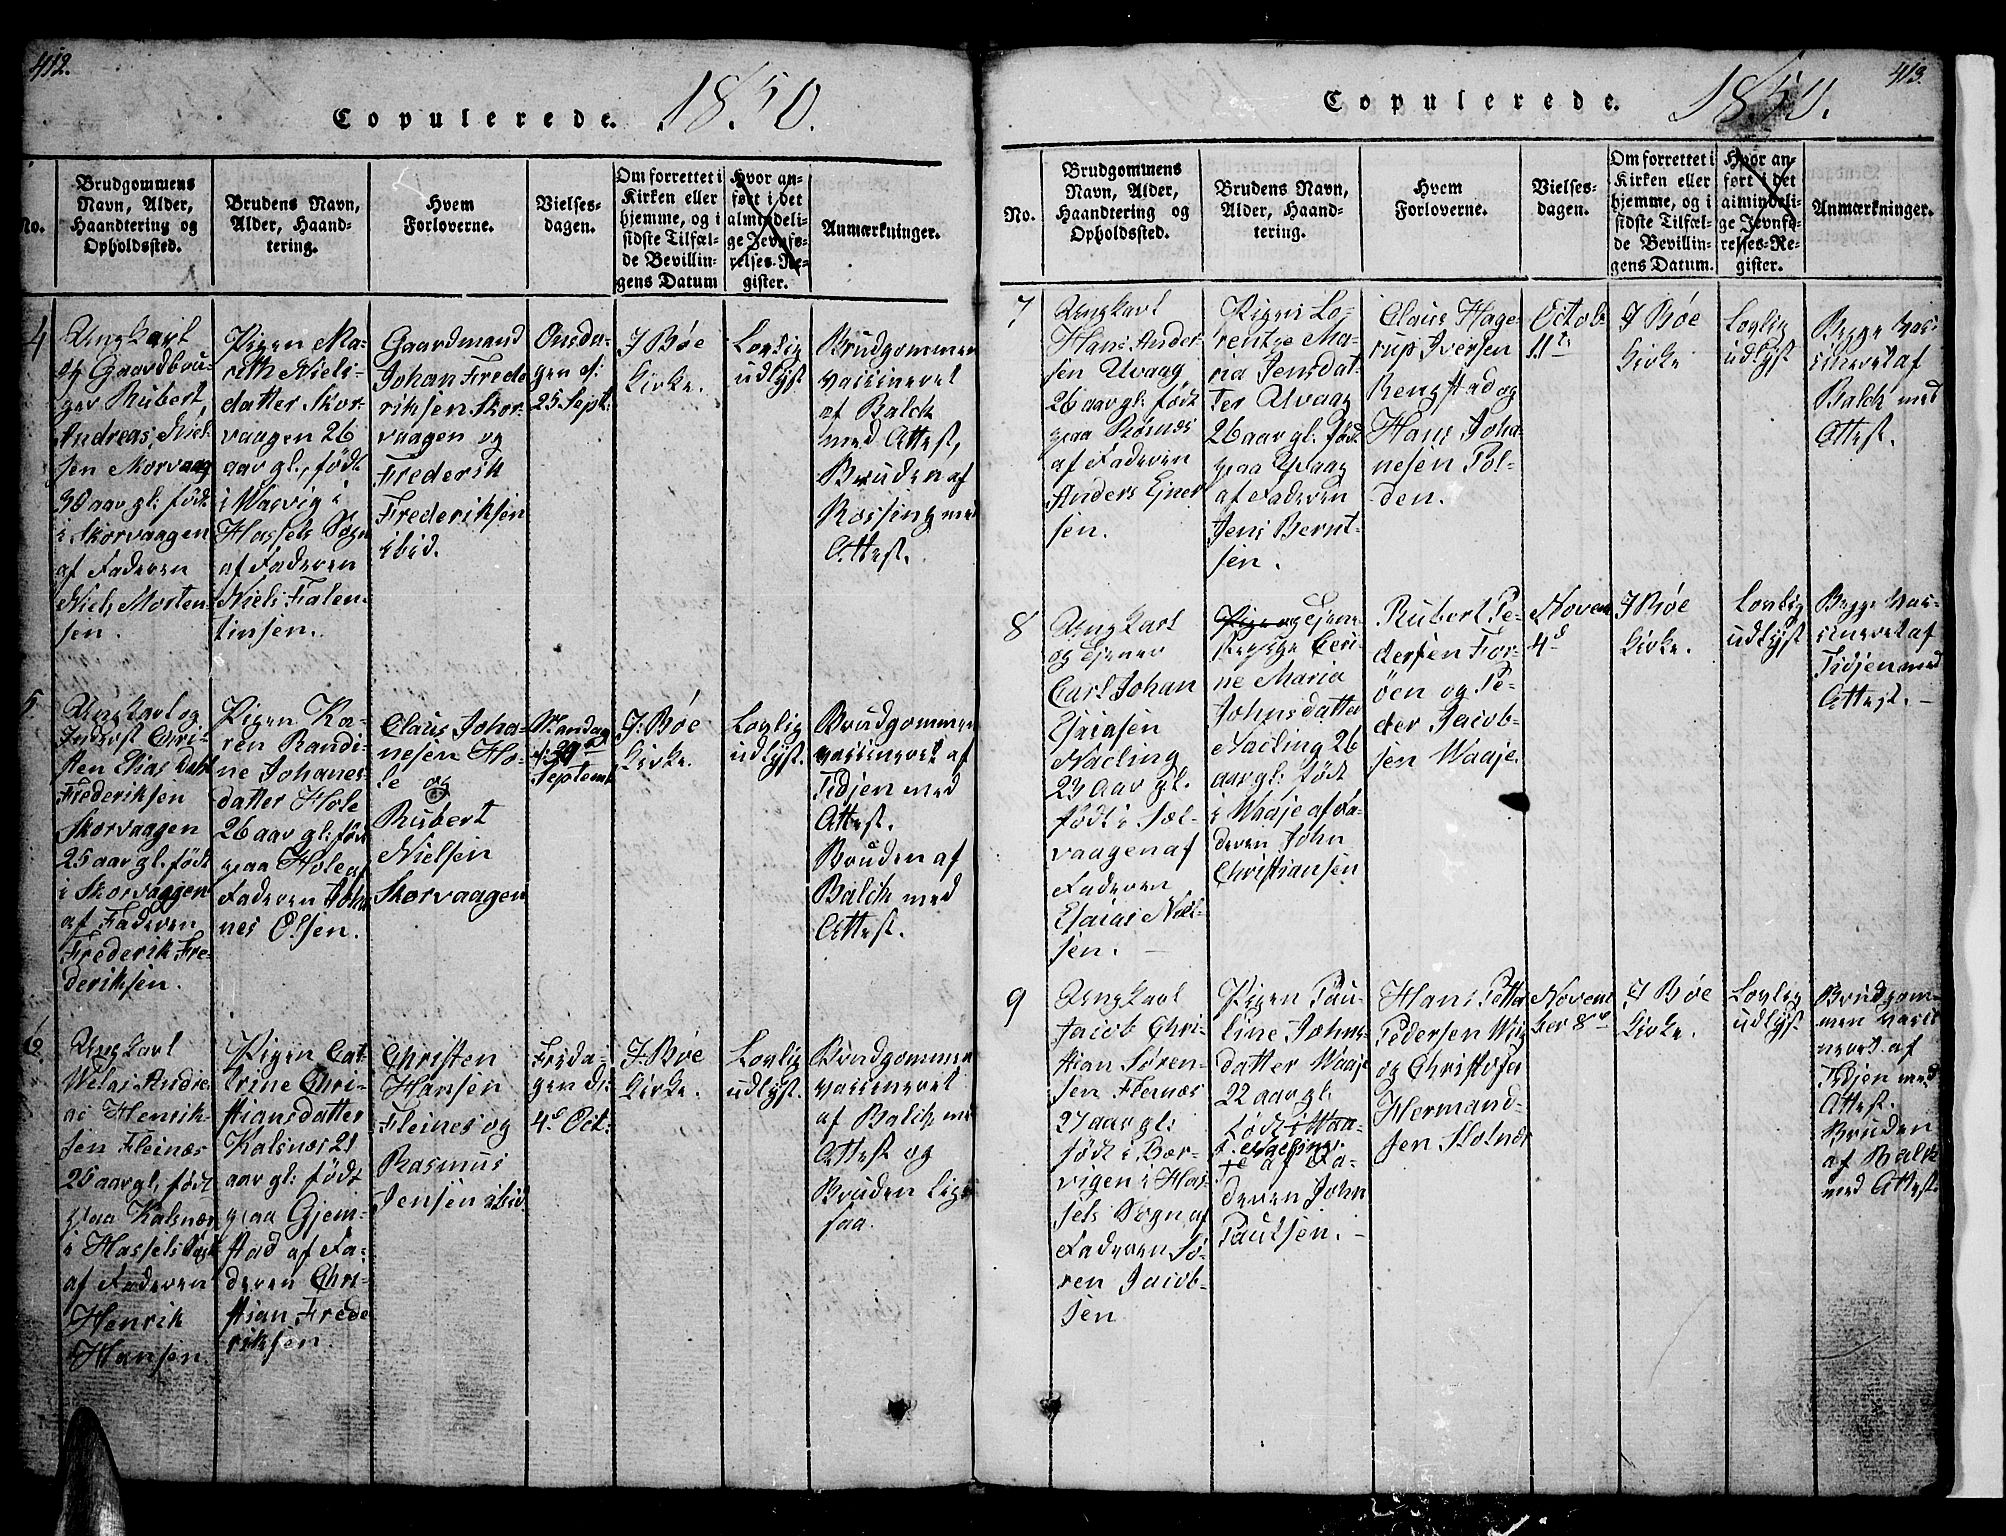 412.
Copulerede. 1850.
No.
Brudgommens
Navn, Alder,
Haandtering og
Opholdssted.
Brudens Navn,
Alder, Haand-
tering.
Hvem
Forloverne.
Vielses-
dagen.
Om forrettet i
Kirken eller
hjemme, og i
sidste Tilfæl-
de Bevillin-
gens Datum
Hvor an-
ført i det
almindeli-
ge Jevnfø-
relses-Re-
gister.
Anmærkninger.
4
Ungkarl
og Gaardbru-
ger Rubert
Andreas Niel-
sen Skorvaag
30 aar gl: født
i Skorvaagen
af Faderen
Niels Morten-
sen.
Pigen Ma-
reth Niels-
datter Skor-
vaagen 26
aar gl:, født
i Wasvig i
Hassels Sogn
af Faderen
Niels Falen-
tinsen.
Gaardmand
Johan Frede
riksen Skor-
vaagen og
Frederik
Frederiksen
ibid.
Onsda-
gen d:
25 Sept:
I Bøe
Kirke.
Lovlig
udlyst
Brudgommen
vaccineret
af Balck
med Attest,
Bruden af
Rossing med
Attest.
5
Ungkarl og
Inderst Chri-
sten Elias Dahl
Frederiksen
Skorvaagen
25 aar gl: født
i Skorvaagen
af Faderen
Frederik Fre-
deriksen.
Pigen Ka-
ren Randi-
ne Johanes-
datter Hole
26 aar gl: født
paa Hole af
Faderen Joha
nes Olsen.
Claus Joha-
nesen Ho-
le og
Rubert
Nielsen
Skorvaagen
Mandag
Septembr
I: Bøe
Kirke.
Lovlig
udlyst.
Brudgommen
vaccineret af
Tidjen med
Attest.
Bruden af
Balck med
Attest.
6.
Ungkarl
Andre
as Henrik-
sen Fleinæs
25 aar gl: født
paa Kalsnæs
i Hassels Sogn
af Faderen
Henrik
Hansen.
Pigen Cat-
rine Chri-
stiansdatter
Kalsnæs 21
aar gl: født
paa Gjem-
stad af Fa-
deren Chri-
stian Frede
riksen.
Christen
Hansen
Fleines og
Rasmus
Jensen ibid
Freda-
gen d:
4de Oct:
I: Bøe
Kirke.
Lovlig
udlyst.
Brudgommen
vaccineret
af Balck med
Attest og
Bruden lige
saa.
413.
Copulerede. 1850.
No.
Brudgommens
Navn, Alder,
Haandtering og
Opholdssted.
Brudens Navn,
Alder, Haand-
tering.
Hvem
Forloverne.
Vielses-
dagen.
Om forrettet i
Kirken eller
hjemme, og i
sidste Tilfæl-
de Bevillin-
gens Datum.
Hvor an-
ført i det
almindeli-
ge Jevnfø-
relses-Re-
gister.
Anmærkninger.
7
Ungkarl
Hans Ander
sen Uvaag
26 aar gl: født
paa Rømnæs
af Faderen
Anders Ejner
sen.
Pigen Lo-
rentze Ma-
ria Jensdat-
ter Uvaag
26 aar gl: født
paa Uvaag
af Faderen
Jens Bernt-
sen.
Claus Hage-
rup Iversen
Rengstad og
Hans Joha-
nesen Pol-
den.
Octob
11te
I Bøe
Kirke
Lovlig
udlyst
Begge vac-
cineret af
Balck med
Attest.
8
Ungkarl
og Ejener
Carl Johan
Esaiasen
Nacling
23 aar gl.
født i Sæl-
vaagen af
Faderen
Esaias Niel-
sen.
Pige og Ejene-
Ceri-
ne Maria
Johnsdatter
Nacling 26
aar gl: født
i Waaje af Fa-
deren John
Christiansen
Rubert Pe-
dersen For-
øen og Pe-
der Jacob-
sen Waaje.
Novem
4de
I Bøe
Kirke.
Lovlig
udlyst
Begge vac-
cineret af
Tidjen med
Attest.
9
Ungkarl
Jacob Chri-
stian Søren-
sen Fleinæs
27 aar gl:
født i Bær-
vigen i Has-
sels Sogn af
Faderen Sø-
ren Jacob-
sen
Pigen Pau-
line Johns-
datter Waaje
22 aar gl:
født i Waa-
i Nacling
je af Fa-
deren John
Paulsen.
Hans Petter
Pedersen Wig
og Christofer
Hermand-
sen Skotnæs
Novem
ber 8de
I Bøe
Kirke.
Lovlig
udlyst
Brudgom-
men vacci
neret af
Tidjen med
Attest.
Bruden
af Balck
med Attest.